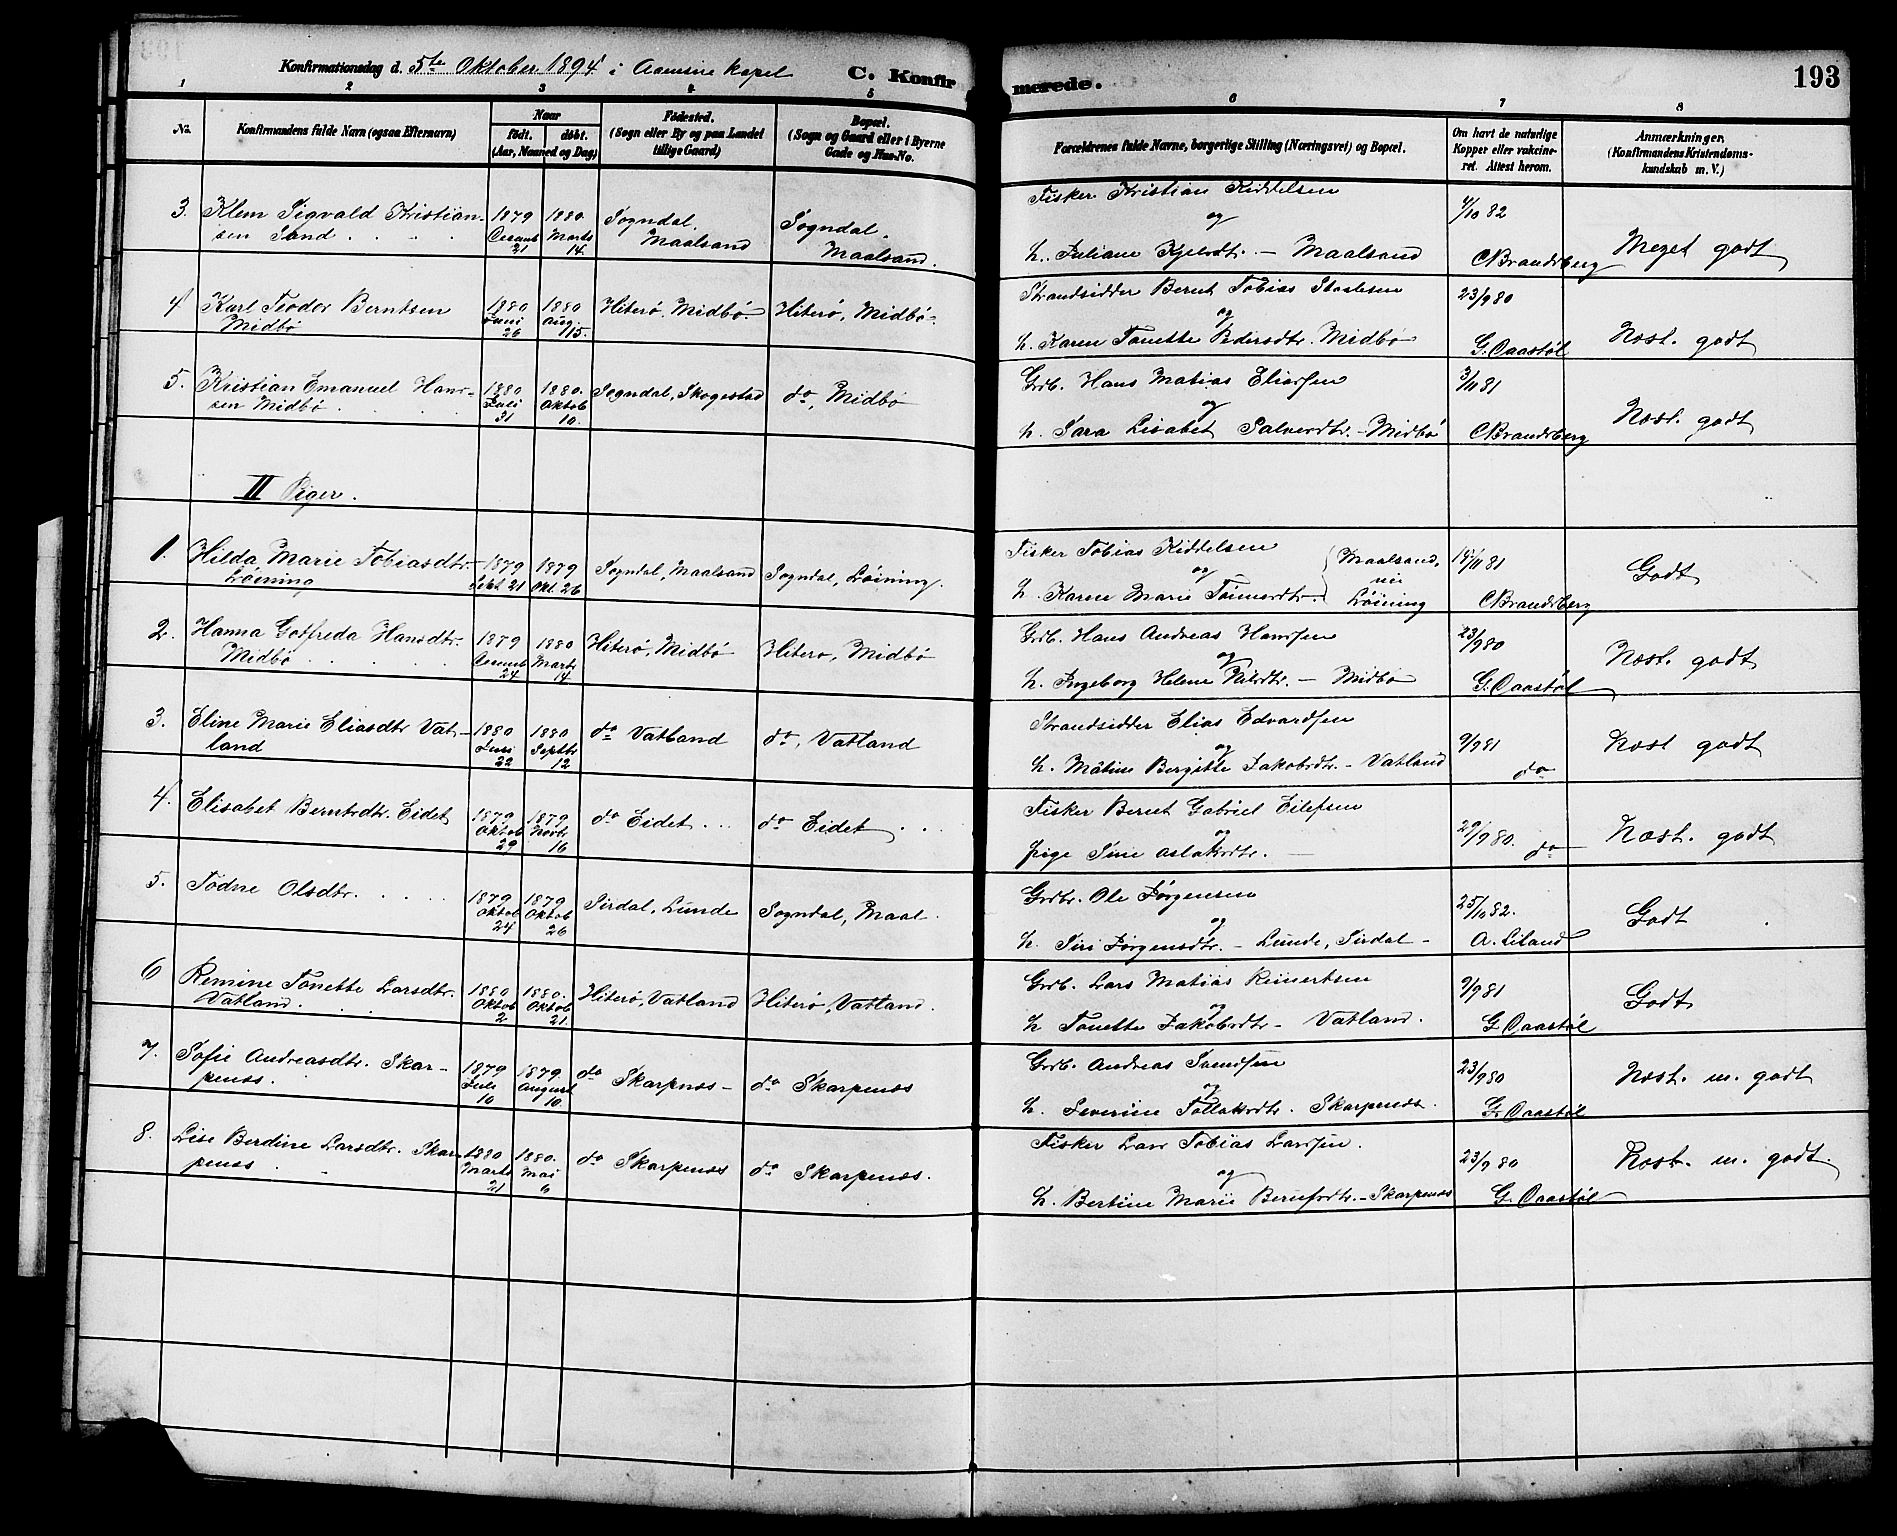 Konfirmationsdag d. 5te Oktober 1894 i Aaensire kapel C. Konfir
merede. 193
1 2 3 4 5 6 7 8
No. Konfirmandens fulde Navn (ogsaa Efternavn) Naar født. døbt. (Aar, Maaned og Dag) Fødested. (Sogn eller By og paa Landet tillige Gaard) Bopæl. (Sogn og Gaard eller i Byerne Gade og Hus-No. Forældrenes fulde Navne, borgerlige Stilling (Næringsvei) og Bopæl. Om havt de naturlige Kopper eller vakcineret. Attest herom. Anmærkninger. (Konfirmandens Kristendomskundskab m. V.)
3. Klem Sigvald Kristian- 1879 1880. Sogndal, Sogndal. Fisker Kristian Kiddelsen 4/10 82
sen Sand . . . . Decemb 21 Marts 14. Maalsand Maalsand. og h. Juliane Kjelsdtr. – Maalsand CBrandsberg Meget godt
4 Karl Teodor Berntsen 1880 1880 Hiterö, Midbö. Hiterö, Midbö. Strandsidder Bernt Tobias Staalesen 23/9 80
Midbö Juni 26 Aug. 15. og h. Karen Tonette Pedersdtr. Midbö G. Oaastøl Næst. godt
5. Kristian Emanuel Han- 1880 1880. Sogndal, Skogestad do, Midbö Grdb. Hans Matias Eliassen 3/11 81
sen Midbö . . . . Juli 31 Oktob 10. og h. Sara Lisabet Salvesdtr. – Midbö CBrandsberg Næst. godt
II Piger.
1. Hilda Marie Tobiasdtr. 1879 1879 Sogndal, Maalsand Sogndal, Löining. Fisker Tobias Kiddelsen Maalsand, 14/11 81
Löining Sept. 21 Okt. 26 og h. Karen Marie Tönnesdtr. nu Löining CBrandsberg Godt
2. Hanna Gotfreda Hansdtr. 1879 1880 Hiterö, Midbö Hiterö, Midbö Grdb. Hans Andreas Hansen 23/9 80
Midbö . . . . Decemb 24 Marts 14. og h. Ingeborg Helene Nilsdtr. – Midbö G. Oaastøl Næst. godt
3. Eline Marie Eliasdtr Vat- 1880 1880 do Vatland do, Vatland Strandsidder Elias Edvardsen 9/9 81
land Juni 22 Septbr 12 og h. Mâtine Bergitte Jakobsdtr. – Vatland do Næst godt
4. Elisabet Berntsdtr. Eidet 1879 1879 do Eidet . . . do Eidet . . . Fisker Bernt Gabriel Eilefsen
Oktob 29 Novbr 16 og pige Sine Aslaksdtr. – 29/9 80. do Næst. godt
5. Tödne Olsdtr. . . . . 1879 1879 Sirdal, Lunde Sogndal, Maal. Grdbr. Ole Jørgensen 25/10 82.
Oktob 24 Oktob 26 og h. Siri Jörgensdtr. – Lunde, Sirdal – A. Liland Godt
6 Remine Tonette Larsdtr. 1880 1880. Hiterö, Vatland Hiterö, Vatland. Grdb. Lars Matias Reinertsen 9/9 81
Vatland. . . Oktob 2 Oktob 21. og h Tonette Jakobsdtr – Vatland. G Oaastøl Godt
7. Sofie Andreasdtr. Skar- 1879 1879. do Skarpnæs – do Skarpenæs Grdb. Andreas Samsen 23/9 80
penæs. Juli 10 August 10. og h. Severine Tollaksdtr. Skarpenæs. G. Oaastøl Næst. m. godt
8. Lise Berdine Larsdtr. Skar- 1880 1880. do Skarpenæs do Skarpenæs. Fisker Lars Tobias Larsen. 23/9 80
penæs . . Marts 21 Mai 6 og h. Bertine Marie Berntsdtr. – Skarpenæs G. Oaastøl Næst. m. godt.